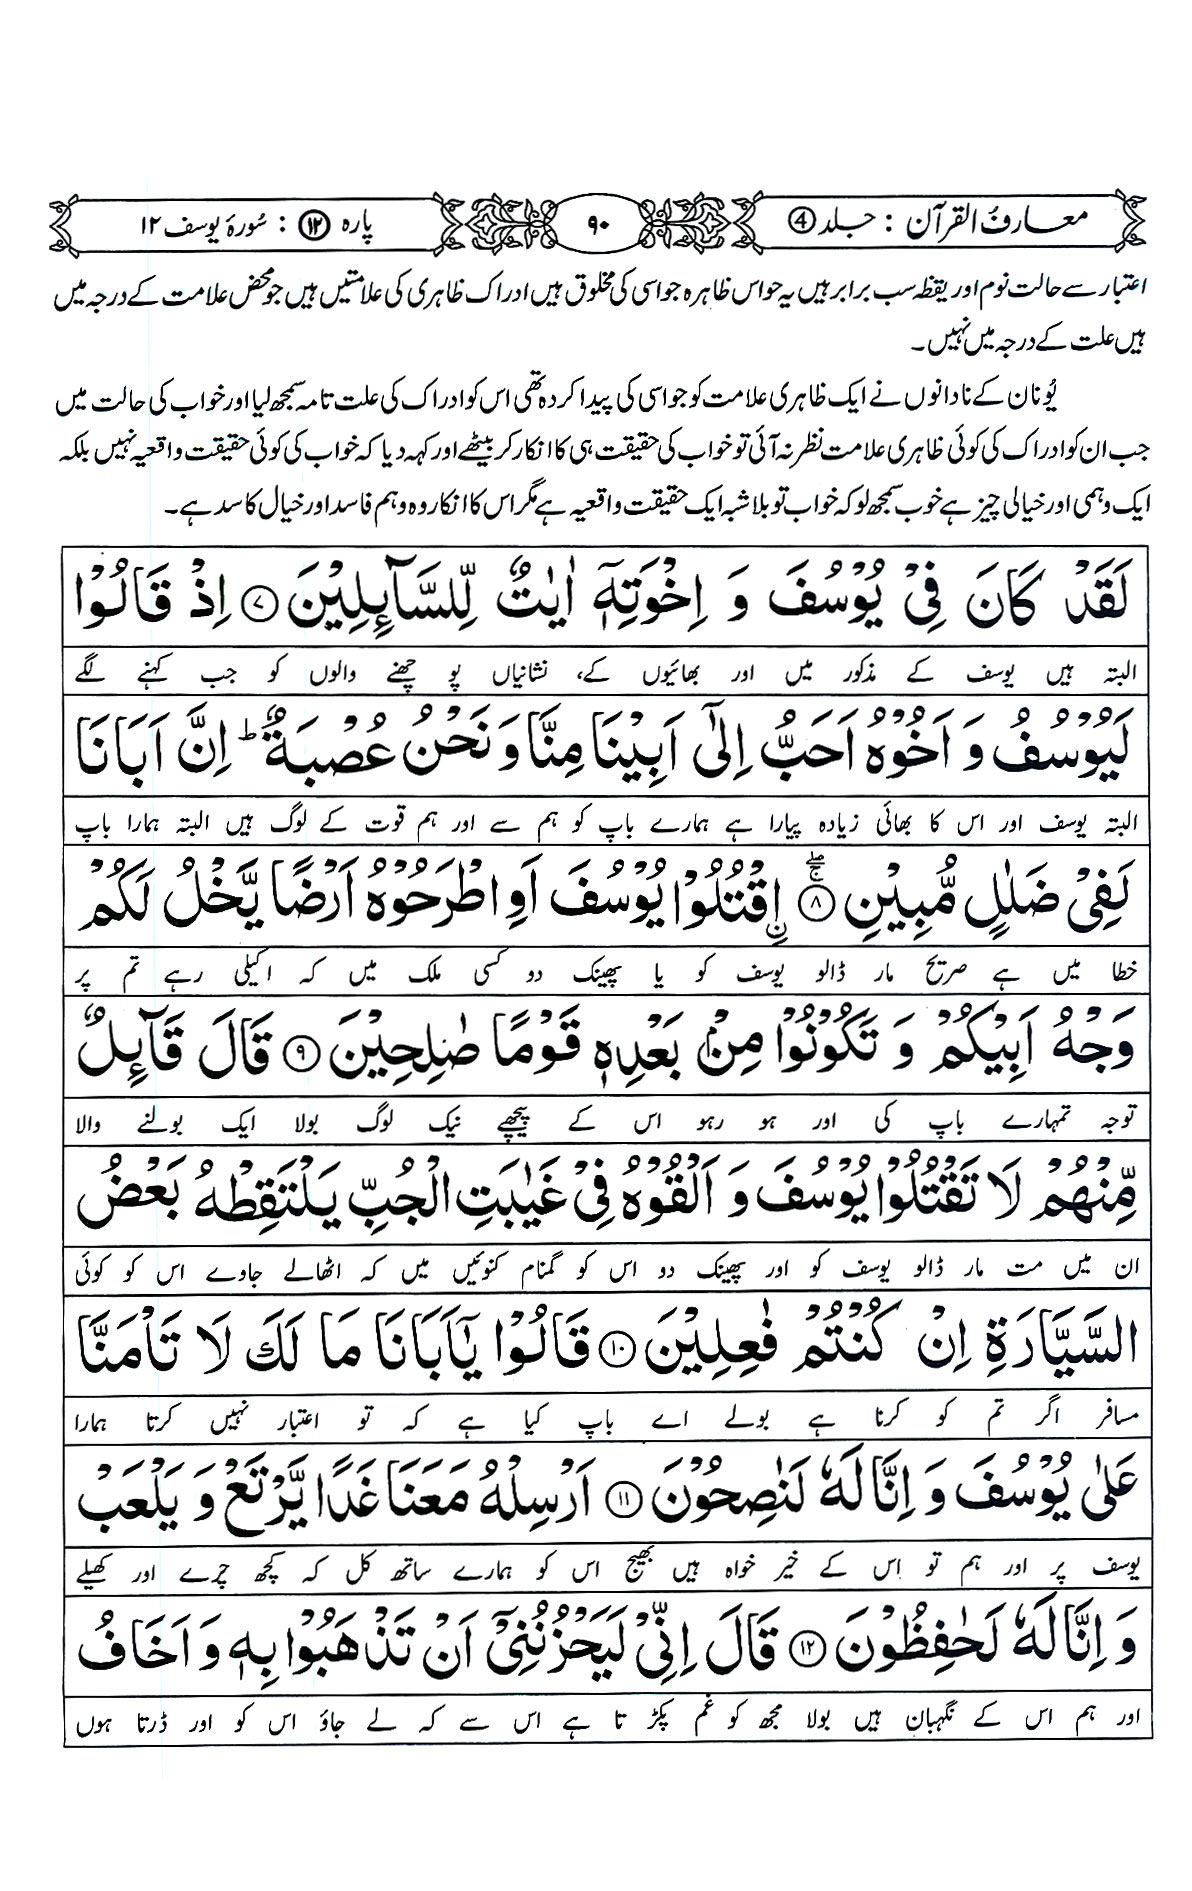 معارفُ القرآن : جلد ④
۹۰
پارہ ⑫ : سُورۂ یوسف ۱۲
اعتبار سے حالت نوم اور یقظہ سب برابر ہیں یہ حواس ظاہرہ جو اسی کی مخلوق ہیں ادراک ظاہری کی علامتیں ہیں جو محض علامت کے درجہ میں
ہیں علت کے درجہ میں نہیں۔
یُونان کے نادانوں نے ایک ظاہری علامت کو جو اسی کی پیدا کردہ تھی اس کو ادراک کی علت تامہ سمجھ لیا اور خواب کی حالت میں
جب ان کو ادراک کی کوئی ظاہری علامت نظر نہ آئی تو خواب کی حقیقت ہی کا انکار کر بیٹھے اور کہہ دیا کہ خواب کی کوئی حقیقت واقعیہ نہیں بلکہ
ایک وہمی اور خیالی چیز ہے خوب سمجھ لو کہ خواب تو بلاشبہ ایک حقیقت واقعیہ ہے مگر اس کا انکار وہ وہم فاسد اور خیال کاسد ہے۔
لَقَدْ كَانَ فِیْ یُوْسُفَ وَ اِخْوَتِهٖۤ اٰیٰتٌ لِّلسَّآىِٕلِیْنَ ۷ اِذْ قَالُوْا
البتہ ہیں یوسف کے مذکور میں اور بھائیوں کے، نشانیاں پوچھنے والوں کو جب کہنے لگے
لَیُوْسُفُ وَ اَخُوْهُ اَحَبُّ اِلٰۤى اَبِیْنَا مِنَّا وَ نَحْنُ عُصْبَةٌ ؕ اِنَّ اَبَانَا
البتہ یوسف اور اس کا بھائی زیادہ پیارا ہے ہمارے باپ کو ہم سے اور ہم قوت کے لوگ ہیں البتہ ہمارا باپ
لَفِیْ ضَلٰلٍ مُّبِیْنِ ۸ۚۖ اِ۟قْتُلُوْا یُوْسُفَ اَوِ اطْرَحُوْهُ اَرْضًا یَّخْلُ لَكُمْ
خطا میں ہے صریح مار ڈالو یوسف کو یا پھینک دو کسی ملک میں کہ اکیلی رہے تم پر
وَجْهُ اَبِیْكُمْ وَ تَكُوْنُوْا مِنْۢ بَعْدِهٖ قَوْمًا صٰلِحِیْنَ ۹ قَالَ قَآىِٕلٌ
توجہ تمہارے باپ کی اور ہو رہو اس کے پیچھے نیک لوگ بولا ایک بولنے والا
مِّنْهُمْ لَا تَقْتُلُوْا یُوْسُفَ وَ اَلْقُوْهُ فِیْ غَیٰبَتِ الْجُبِّ یَلْتَقِطْهُ بَعْضُ
ان میں مت مار ڈالو یوسف کو اور پھینک دو اس کو گمنام کنوئیں میں کہ اٹھا لے جاوے اس کو کوئی
السَّیَّارَةِ اِنْ كُنْتُمْ فٰعِلِیْنَ ۱۰ قَالُوْا یٰۤاَبَانَا مَا لَكَ لَا تَاْمَنَّا
مسافر اگر تم کو کرنا ہے بولے اے باپ کیا ہے کہ تو اعتبار نہیں کرتا ہمارا
عَلٰى یُوْسُفَ وَ اِنَّا لَهٗ لَنٰصِحُوْنَ ۱۱ اَرْسِلْهُ مَعَنَا غَدًا یَّرْتَعْ وَ یَلْعَبْ
یوسف پر اور ہم تو اس کے خیر خواہ ہیں بھیج اس کو ہمارے ساتھ کل کہ کچھ چرے اور کھیلے
وَ اِنَّا لَهٗ لَحٰفِظُوْنَ ۱۲ قَالَ اِنِّیْ لَیَحْزُنُنِیْۤ اَنْ تَذْهَبُوْا بِهٖ وَ اَخَافُ
اور ہم اس کے نگہبان ہیں بولا مجھ کو غم پکڑ تا ہے اس سے کہ لے جاؤ اس کو اور ڈرتا ہوں